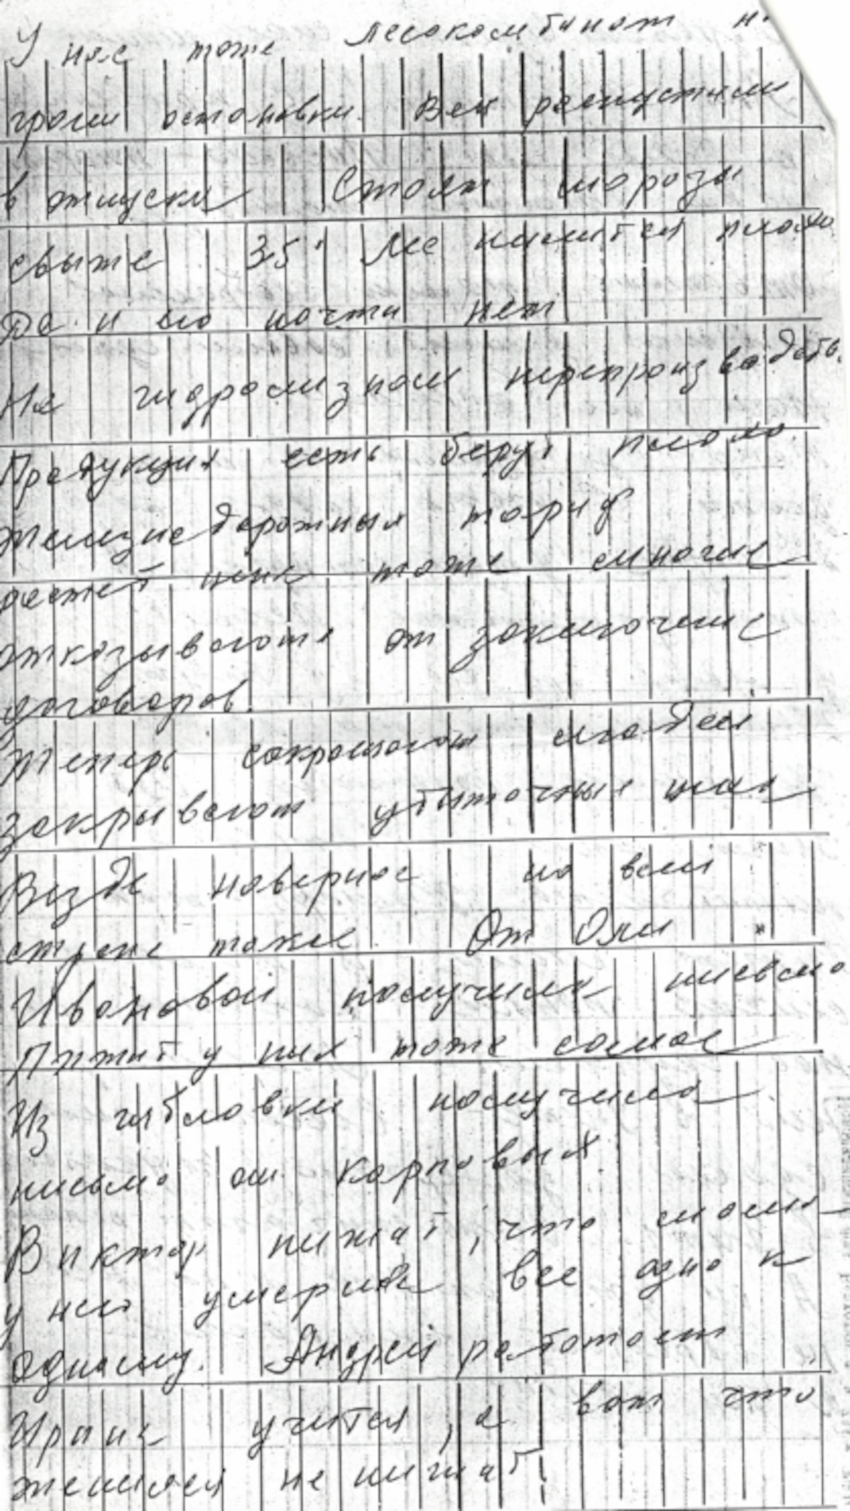 У нас тоже лесокомбинат н
грани остановки. Всех распустили
в отпуска Стоят морозы
свыше 35° Лес пилится плохо
Да и его почти нет
На гидролизном перепроизводств.
Продукция есть берут плохо
Железнодорожный тариф
растет цена тоже многие
отказываются от заключение
договоров.
Теперь сокращают людей
закрывают убыточные
Везде наверное по всей
стране также. От Оли
Ивановой получили письмо
Пишет у них тоже самое
Из получила
письмо от Карповых
Виктор пишет, что мама
у него умерла все одно к
одному. Андрей работает
Ирина учится, а вот что
женился не пишет.